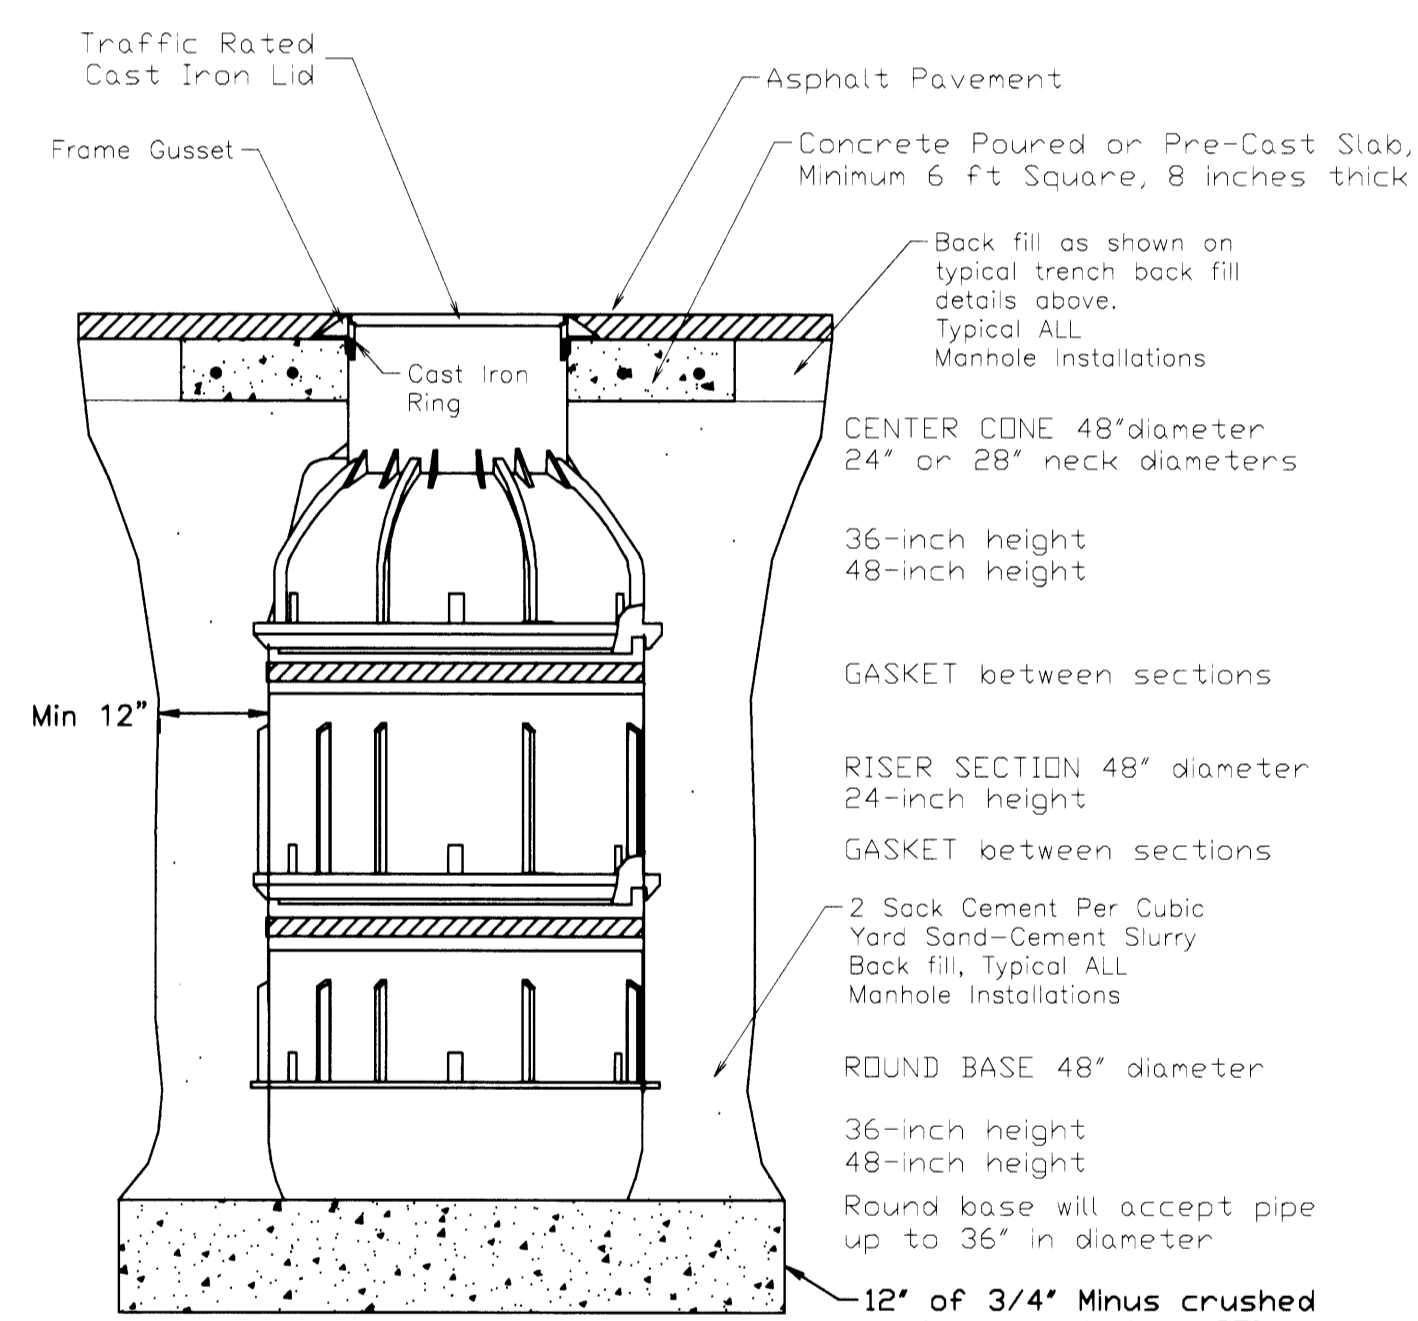 Traffic Rated
Cast Iron Lid
Asphalt Pavement
Frame Gusset
Concrete Poured or Pre-Cast Slab,
Minimum 6 ft Square, 8 inches thick
Back fill as shown on
typical trench back fill
details above.
Typical ALL
Manhole Installations
Cast Iron
Ring
CENTER CONE 48"diameter
24" or 28" neck diameters
36-inch height
48-inch height
GASKET between sections
Min 12"
RISER SECTION 48" diameter
24-inch height
GASKET between sections
2 Sack Cement Per Cubic
Yard Sand-Cement Slurry
Back fill, Typical ALL
Manhole Installations
ROUND BASE 48" diameter
36-inch height
48-inch height
Round base will accept pipe
up to 36" in diameter
12" of 3/4" Minus crushed